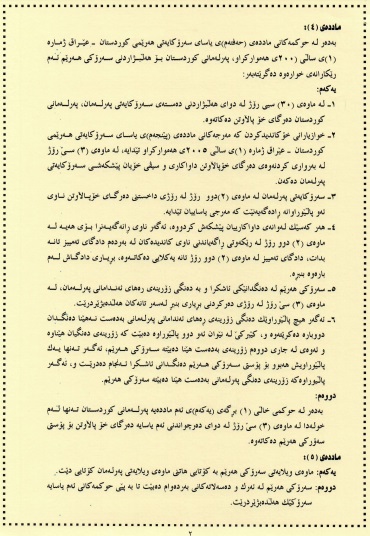 ماددەی (٤):
بەدەر لە حوکمەکانی ماددەی (حەفتەم)ی یاسای سەرۆکایەتی هەرێمی کوردستان – عێراق ژمارە
(١)ی ساڵی (٢٠٠٥)ی هەموارکراو، پەرلەمانی کوردستان بۆ هەڵبژاردنی سەرۆکی هەرێم ئەم
رێکارانەی خوارەوە دەگرێتەبەر:
یەکەم:
١- لە ماوەی (٣٠) سی رۆژ لە دوای هەڵبژاردنی دەستەی سەرۆکایەتی پەرلەمان، پەرلەمانی
کوردستان دەرگای خۆ پاڵاوتن دەکاتەوە.
٢- خوازیارانی خۆکاندیدکردن کە مەرجەکانی ماددەی (پێنجەم)ی یاسای سەرۆکایەتی هەرێمی
کوردستان – عێراق ژمارە (١)ی ساڵی ٢٠٠٥ی هەموارکراو تێدایە، لە ماوەی (٣) سێ رۆژ
لە بەرواری کردنەوەی دەرگای خۆپاڵاوتن داواکاری و سیڤی خۆیان پێشکەشی سەرۆکایەتی
پەرلەمان دەکەن.
٣- سەرۆکایەتی پەرلەمان لە ماوەی (٢)دوو رۆژ لە رۆژی داخستنی دەرگای خۆپاڵاوتن ناوی
ئەو پاڵێوراوانە رادەگەیەنێت کە مەرجی یاساییان تێدایە.
٤- هەر کەسێک لەوانەی داواکارییان پێشکەش کردووە، ئەگەر ناوی رانەگەیەنرا بۆی هەیە لە
ماوەی (٢) دوو رۆژ لە رێکەوتی راگەیاندنی ناوی کاندیدەکان لە بەردەم دادگای تەمییز تانە
بدات، دادگای تەمییز لە ماوەی (٢) دوو رۆژ تانە یەکلایی دەکاتەوە، بڕیاری دادگاش لەم
بارەوە بنبڕە.
٥- سەرۆکی هەرێم لە دەنگدانێکی ئاشکرا و بە دەنگی زۆرینەی رەهای ئەندامانی پەرلەمان، لە
ماوەی (٣) سێ رۆژ لە رۆژی دەرکردنی بڕیاری بنبڕ لەسەر تانەکان هەڵدەبژێردرێت.
٦- ئەگەر هیچ پاڵێوراوێک دەنگی زۆرینەی رەهای ئەندامانی پەرلەمانی بەدەست نەهێنا دەنگدان
دووبارە دەکرێتەوە و، کێبڕکێ لە نێوان ئەو دوو پاڵێوراوە دەبێت کە زۆرینەی دەنگیان هێناوە
و ئەوەی لە جاری دووەم زۆرینەی بەدەست هێنا دەبێتە سەرۆکی هەرێم، ئەگەر تەنها یەک
پاڵێوراویش هەبوو بۆ پۆستی سەرۆکی هەرێم دەنگدانی ئاشکرا ئەنجام دەدرێت و، ئەگەر
پاڵێوراوەکە زۆرینەی دەنگی پەرلەمانی بەدەست هێنا دەبێتە سەرۆکی هەرێم.
دووەم:
بەدەر لە حوکمی خاڵی (١) بڕگەی (یەکەم)ی ئەم ماددەیە پەرلەمانی کوردستان تەنها لەم
خولەدا لە ماوەی (٣) سێ رۆژ لە دوای دەرچواندنی ئەم یاسایە دەرگای خۆ پاڵاوتن بۆ پۆستی
سەرۆکی هەرێم دەکاتەوە.
ماددەی (٥):
یەکەم: ماوەی ویلایەتی سەرۆکی هەرێم بە کۆتایی هاتنی ماوەی ویلایەتی پەرلەمان کۆتایی دێت.
دووەم: سەرۆکی هەرێم لە ئەرک و دەسەڵاتەکانی بەردەوام دەبێت تا بە پێی حوکمەکانی ئەم یاسایە
سەرۆکێک هەڵدەبژێردرێت.
٢